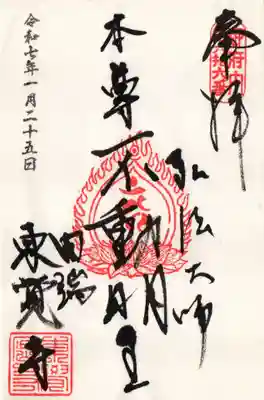 奉拝
弘法大師
本尊不動明王
田端
東覺寺
令和七年一月二十五日